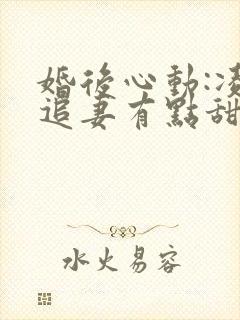 婚後心動:凌
追妻有點甜
水火易容